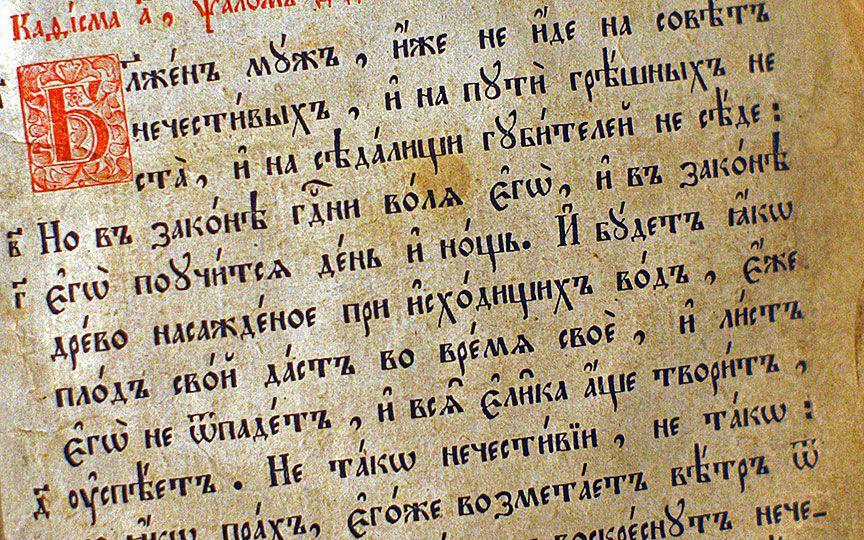 Каѳі́сма а҃, ѱало́мъ
Бл҃же́нъ мꙋ́жъ, и҆́же не и҆́де на совѣ́тъ
нечести́выхъ, и҆ на пꙋтѝ грѣ́шныхъ не
ста̀, и҆ на сѣда́лищи гꙋби́телей не сѣ́де:
в҃ Но въ зако́нѣ гд҇ни во́лѧ є҆гѡ̀, и҆ въ зако́нѣ
г҃ є҆гѡ̀ поꙋчи́тсѧ де́нь и҆ но́щь. И҆ бꙋ́детъ ꙗ҆́кѡ
дре́во насажде́ное при и҆схо́дищихъ во́дъ, є҆́же
пло́дъ сво́й да́стъ во вре́мѧ своѐ, и҆ ли́стъ
є҆гѡ̀ не ѿпаде́тъ, и҆ всѧ̑ є҆ли̑ка а҆́ще твори́тъ,
д҃ оу҆спѣ́етъ. Не та́кѡ нечести́вїи, не та́кѡ:
ꙗ҆́кѡ пра́хъ, є҆го́же возмета́етъ вѣ́тръ ѿ
воскре́снꙋтъ нече-